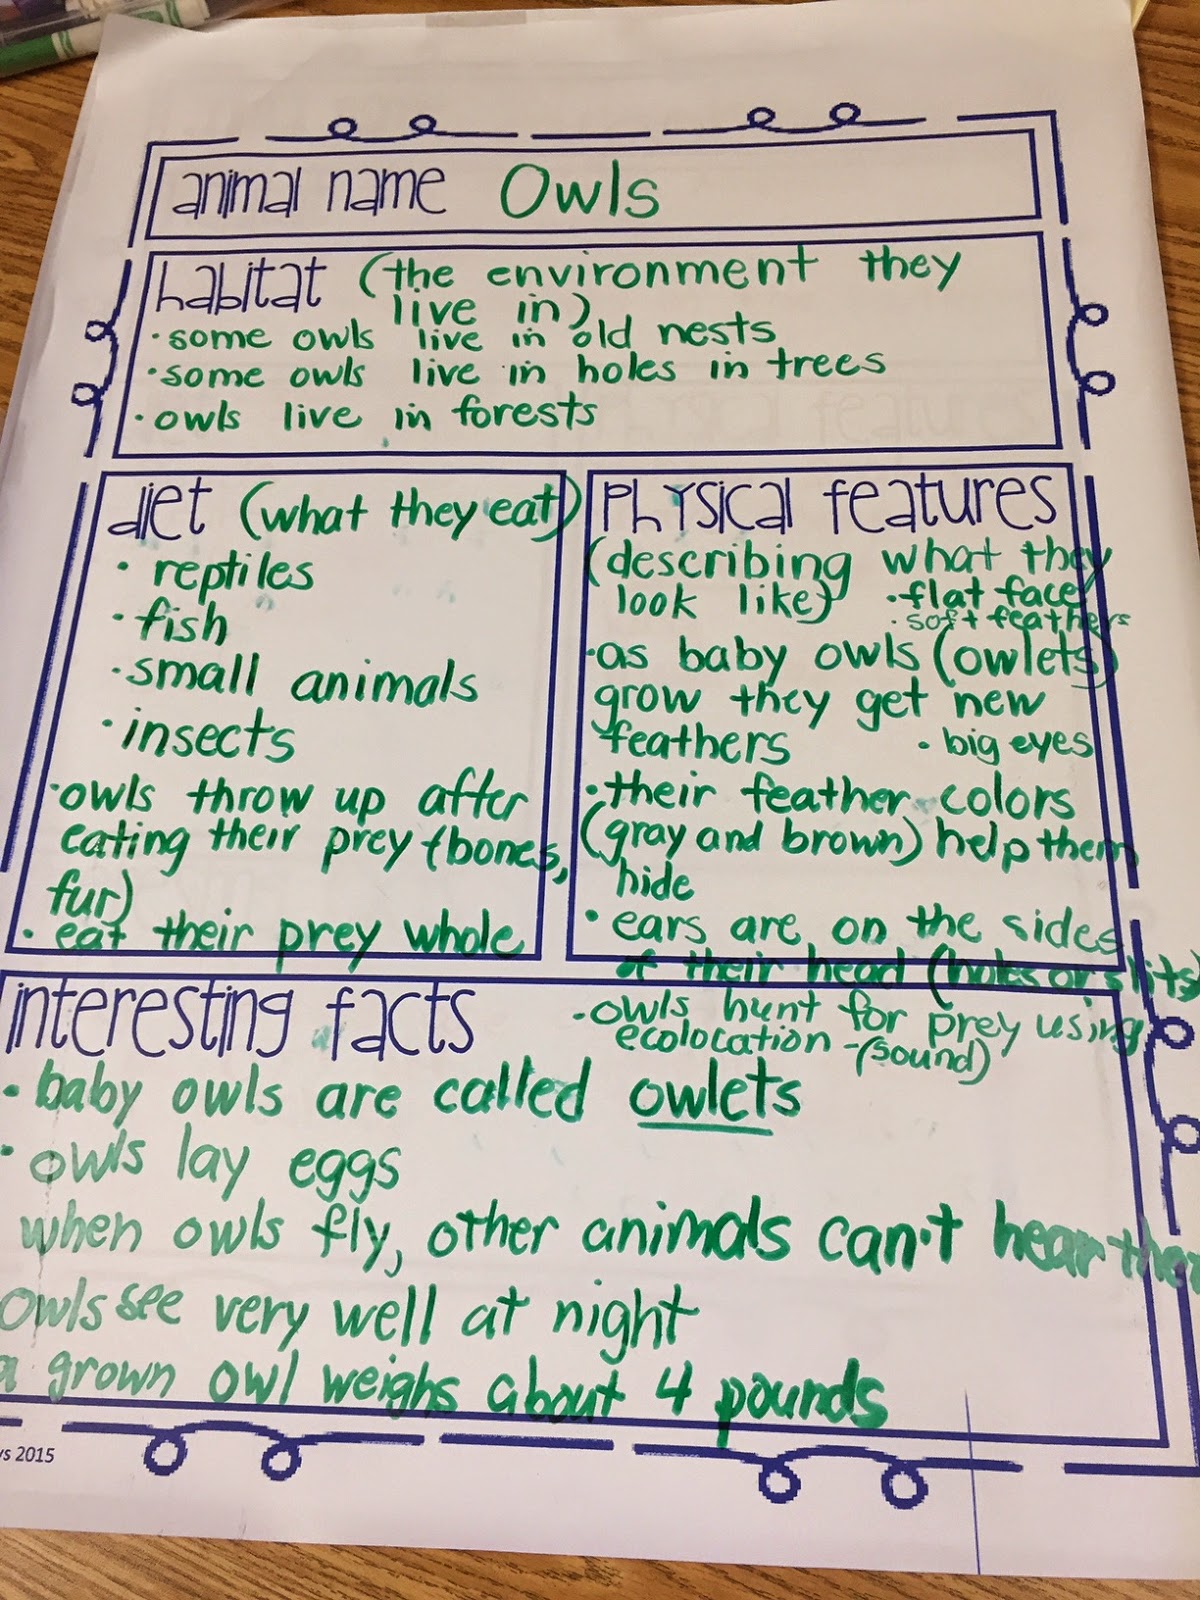 animal name Owls
habitat (the environment they
live in)
·some owls live in old nests
·some owls live in holes in trees
·owls live in forests
diet (what they eat)
· reptiles
· fish
· small animals
· insects
·owls throw up after
eating their prey (bones,
fur)
· eat their prey whole
Physical features
(describing what they
look like)
·flat face
·soft feathers
·as baby owls (owlets)
grow they get new
feathers
· big eyes
·their feather colors
(gray and brown) help them
hide
· ears are on the sides
of their head (holes or slits)
interesting facts
·owls hunt for prey using
ecolocation -(sound)
· baby owls are called owlets
· owls lay eggs
when owls fly, other animals can't hear them
Owls see very well at night
a grown owl weighs about 4 pounds
2015